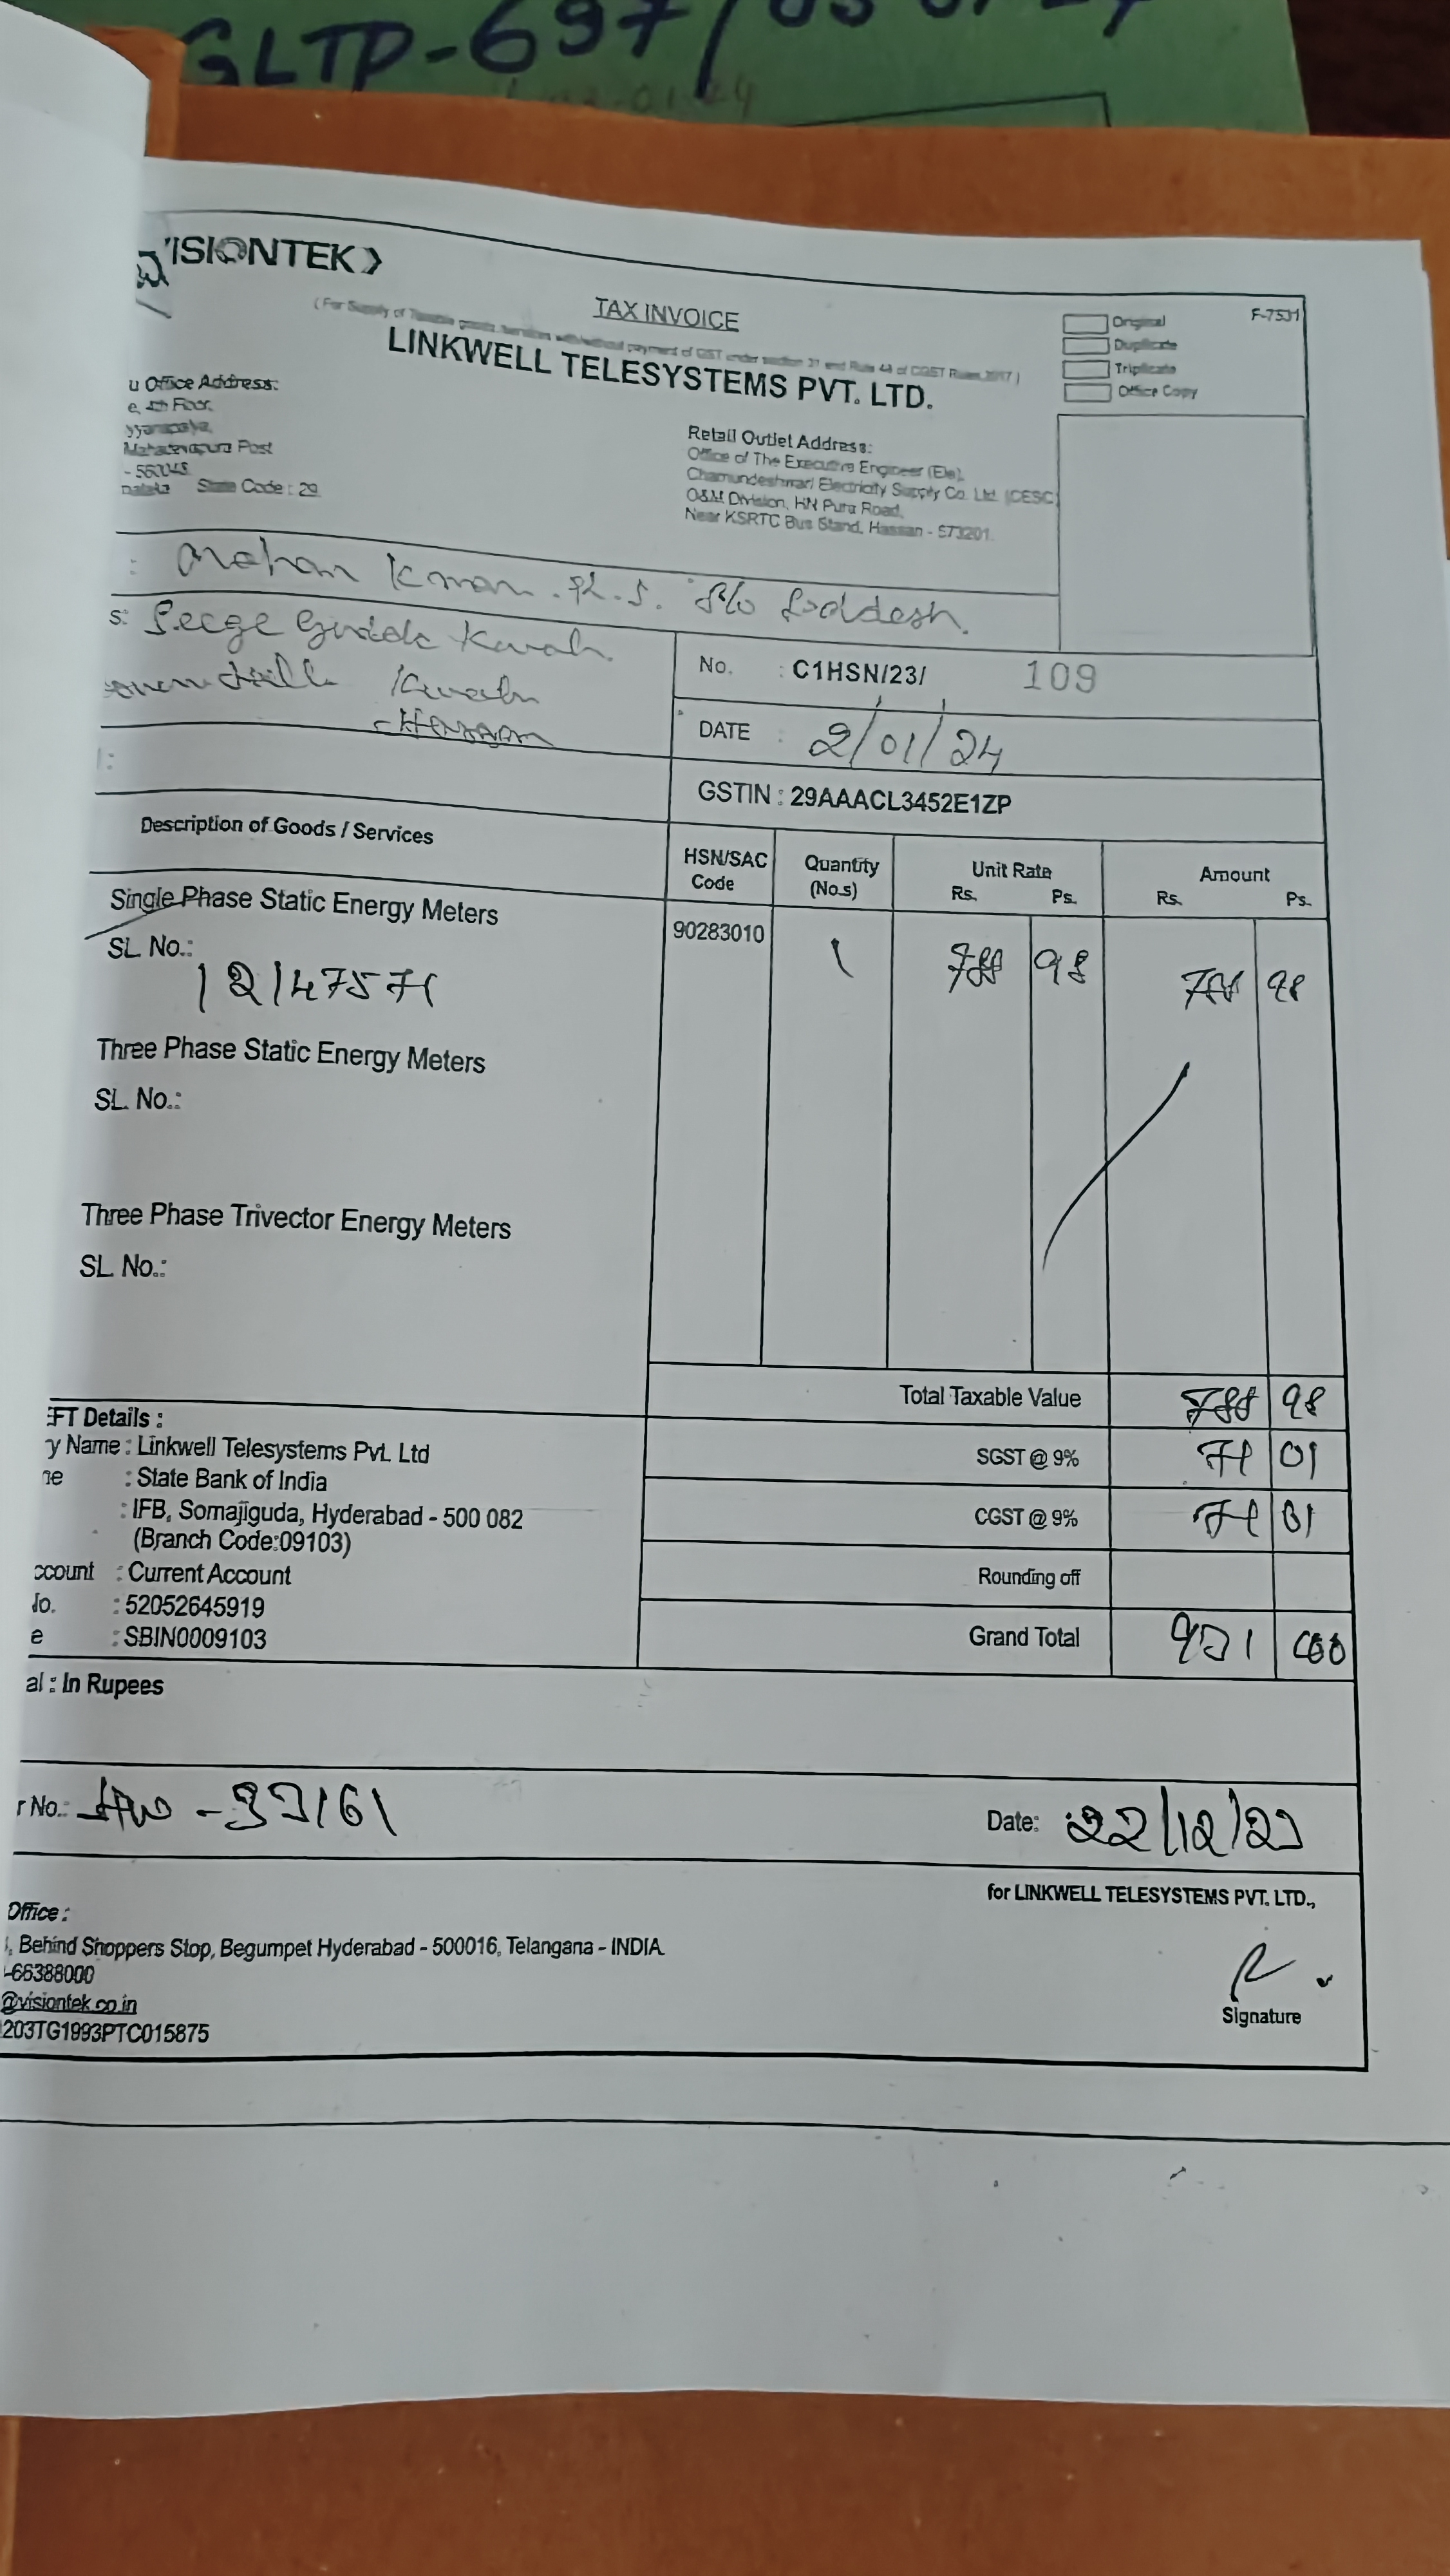 GLTP-697/
VISIONTEK
TAX INVOICE
F-7531
(For Supply of Taxable goods/services with/without payment of GST under section 31 and Rule 48 of CGST Rules 2017)
LINKWELL TELESYSTEMS PVT. LTD.
Original
Duplicate
Triplicate
Office Copy
u Office Address:
e, 4th Floor,
Mahadevapura Post
- 560048
State Code : 29
Retail Outlet Address:
Office of The Executive Engineer (Ele),
Chamundeshwari Electricity Supply Co. Ltd. (CESC)
O&M Division, HN Pura Road,
Near KSRTC Bus Stand, Hassan - 573201.
: Mohan Kumar. S/o
s:
No. : C1HSN/23/ 109
DATE : 2/01/24
GSTIN : 29AAACL3452E1ZP
Description of Goods / Services
HSN/SAC Code
Quantity (No.s)
Unit Rate
Rs. Ps.
Amount
Rs. Ps.
Single Phase Static Energy Meters
90283010 1 788 98 788 98
SL No.:
Three Phase Static Energy Meters
SL No.:
Three Phase Trivector Energy Meters
SL No.:
Total Taxable Value 788 98
SGST @ 9% 71 01
CGST @ 9% 71 01
Rounding off
Grand Total 931 00
EFT Details :
y Name : Linkwell Telesystems Pvt. Ltd
me : State Bank of India
: IFB, Somajiguda, Hyderabad - 500 082
(Branch Code:09103)
ccount : Current Account
No. : 52052645919
e : SBIN0009103
al : In Rupees
r No.:
Date: 22/12/23
for LINKWELL TELESYSTEMS PVT. LTD.,
Office :
, Behind Shoppers Stop, Begumpet Hyderabad - 500016, Telangana - INDIA.
-66388000
@visiontek.co.in
203TG1993PTC015875
Signature